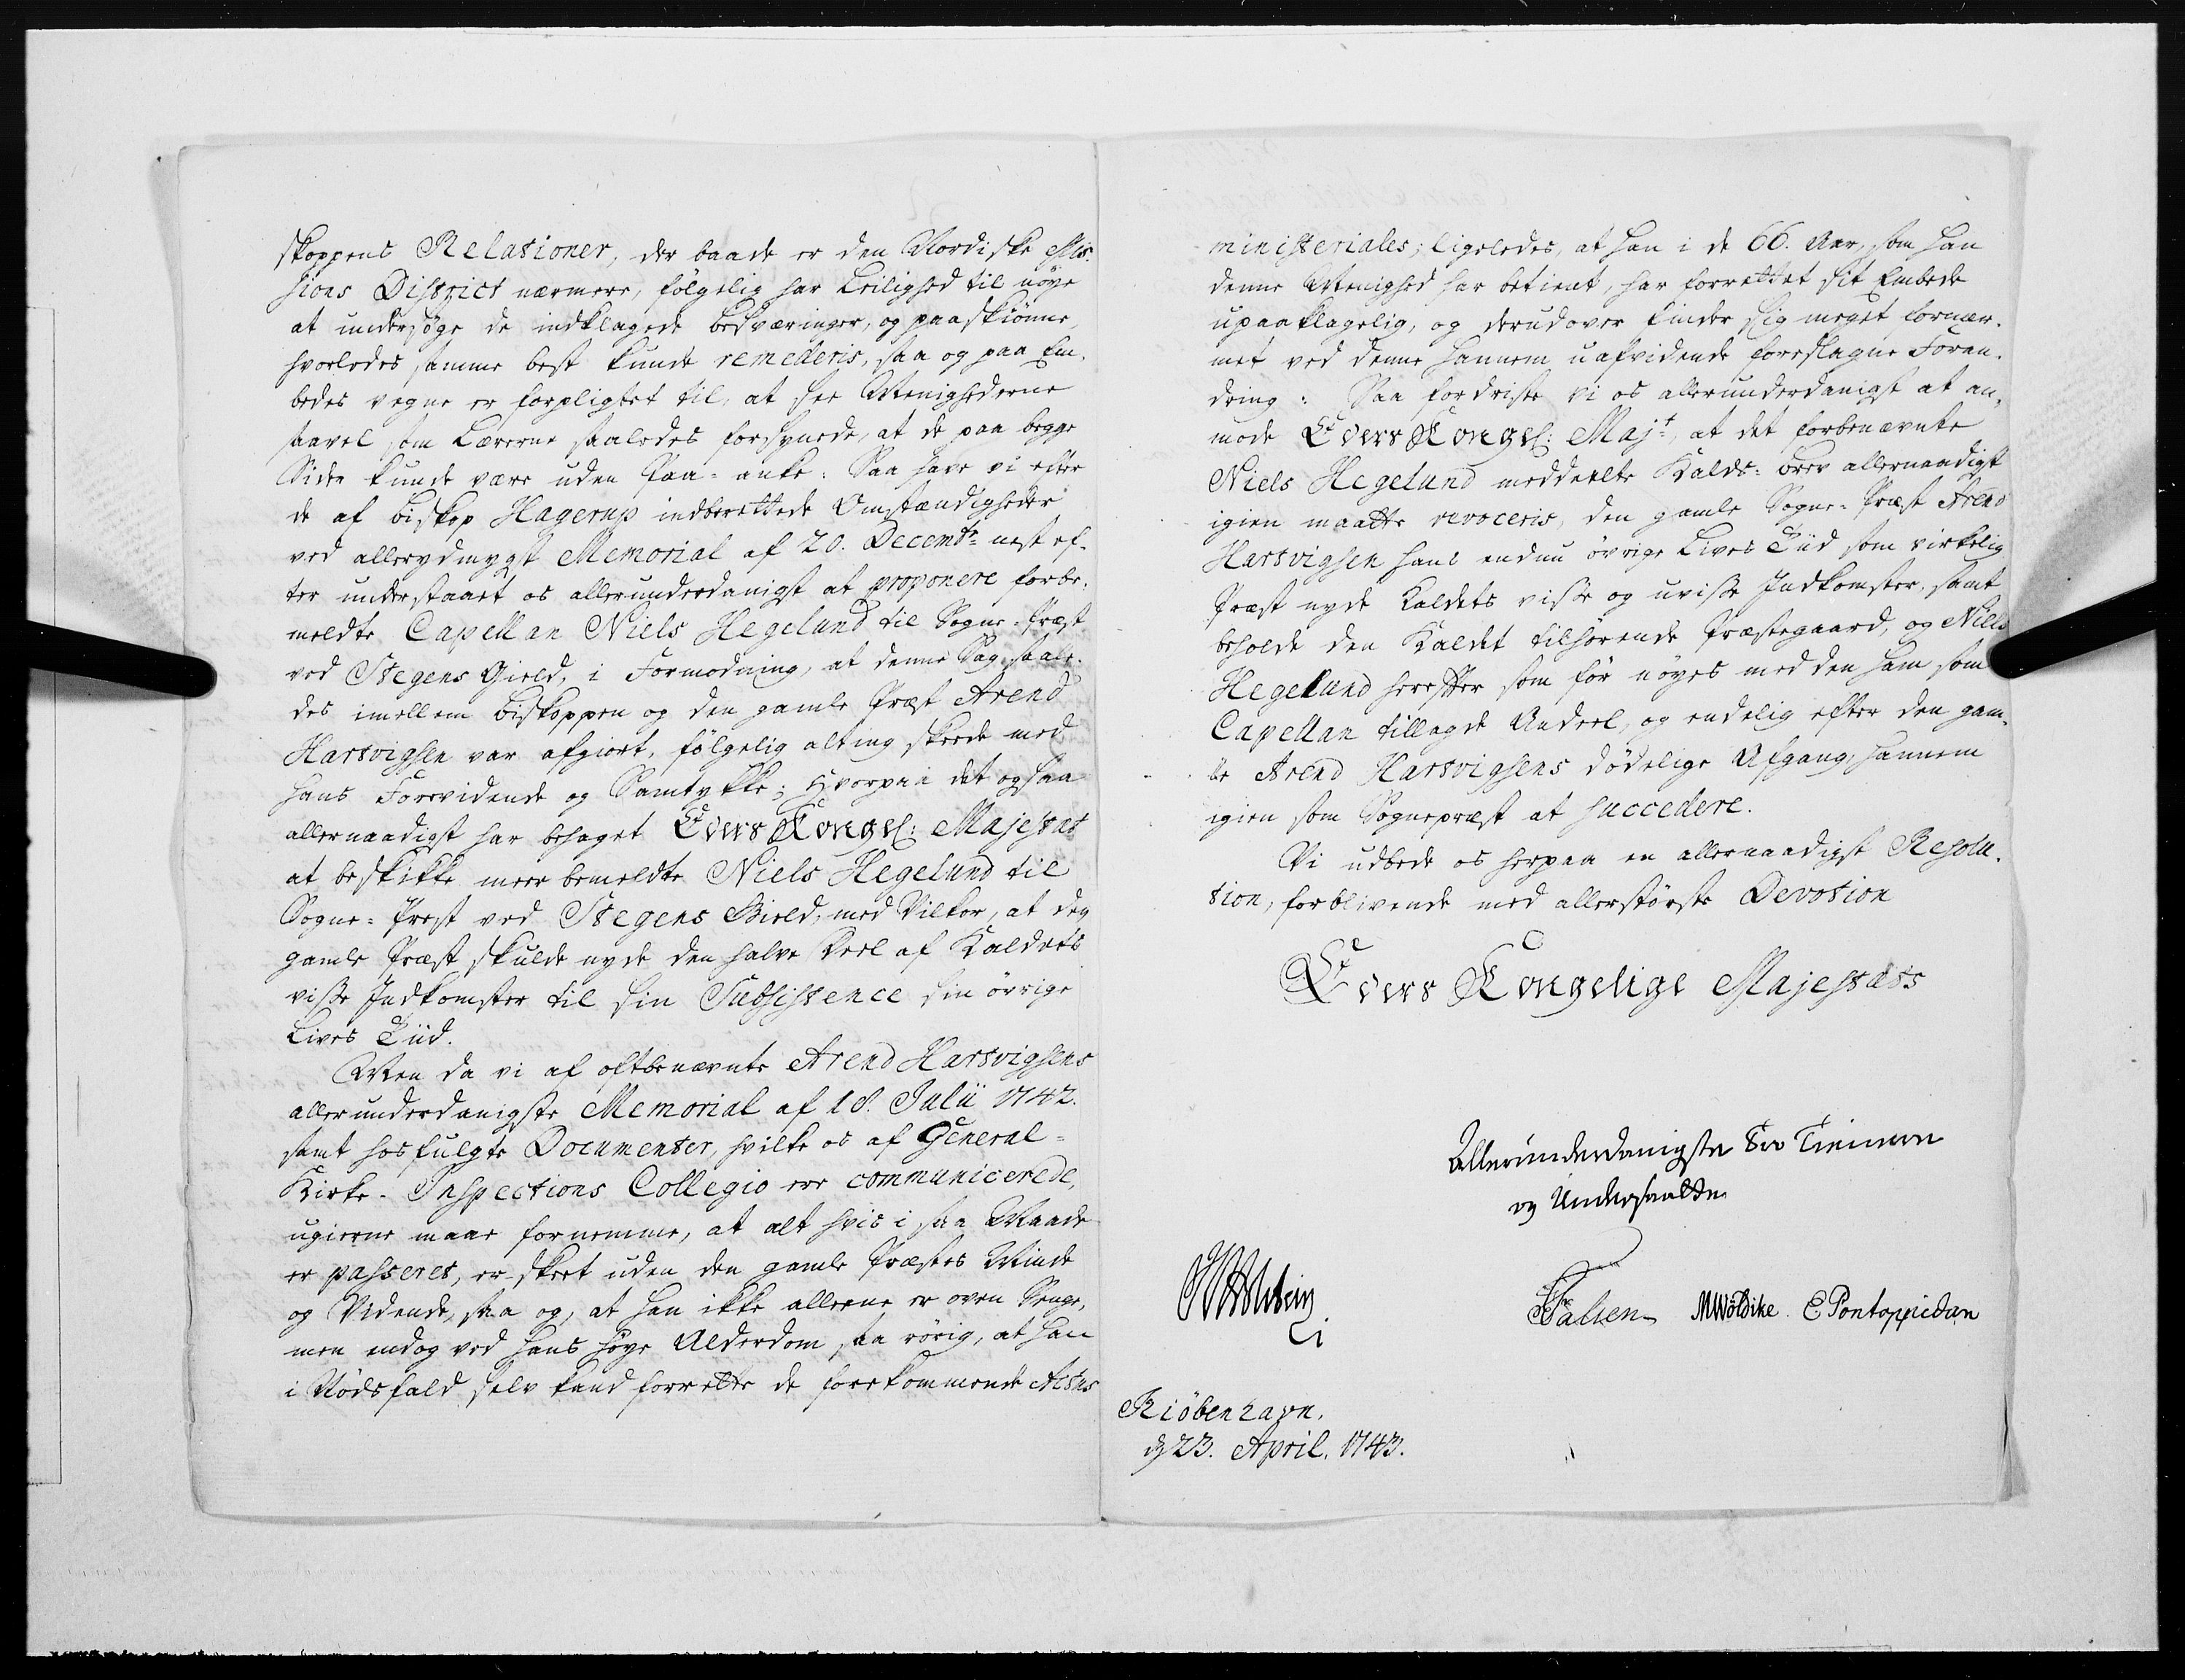 skoppens Relationer, der baade er den Nordiske Mis-
sions District nærmere, følgelig har Leilighed til nøye
at undersøge de indklagede besværinger, og paaskiønne,
hvorledes samme best kunde remederis, saa og paa Em-
bedes vegne er forpligtet til, at see Menighederne
saavel som Lærerne saaledes forsynede, at de paa begge
Sider kunde være uden Paa-anke: Saa have vi efter
de af biskop Hagerup indberettede Omstændigheder
ved allerydmygst Memorial af 20. Decembr: nest ef-
ter understaaet os allerunderdanigst at proponere forbe-
meldte Capellan Niels Hegelund til Sogne-Præst
ved Stegens Gield, i Formodning, at denne Sag saale-
des imellem biskoppen og den gamle Præst Arend
Hartvigsen var afgiort, følgelig alting skeede med
hans Forevidende og Samtykke; Hvorpaa det ogsaa
allernaadigst har behaget Eders Kongel: Majestæt
at beskikke meer bemeldte Niels Hegelund til
Sogne-Prest ved Stegens Gield, med Vilkor, at den
gamle Præst skulde nyde den halve Deel af Kaldets
visse Indkomster til sin Subsistence sin øvrige
Lives Tiid.
Men da vi af oftbenævnte Arend Hartvigsens
allerunderdanigste Memorial af 18. Julii 1742.
samt hosfulgte Documenter, hvilke os af General-
Kirke-Inspections Collegio ere communicerede,
ugierne maae fornemme, at alt hvis i saa Maade
er passeret, er skeet uden den gamle Præstes Minde
og Vidende, saa og, at han ikke alleene er oven Senge,
men endog ved hans høye Alderdom saa rørig, at han
i Nødsfald selv kand forrette de forekommende Actus
ministeriales; ligeledes, at han i de 66. Aar, som han
denne Menighed har betient, har forrettet sit Embede
upaaklagelig, og derudover finder sig meget fornær-
met ved denne hannem uafvidende foreslagne Foran-
dring: Saa fordriste vi os allerunderdanigst at an-
mode Eders Kongel: Majt:, at det forbenævnte
Niels Hegelund meddeelte Kalds-brev allernaadigst
igien maatte revoceris, den gamle Sogne-Præst Arend
Hartvigsen hans endnu øvrige Lives Tiid som virkelig
Præst nyde Kaldets visse og uvisse Indkomster, samt
beholde den Kaldet tilhørende Præstegaard, og Niels
Hegelund herefter som før nøyes med den ham som
Capellan tillagde Andeel, og endelig efter den gam-
le Arend Hartvigsens dødelige Afgang, hannem
igien som Sognepræst at succedere.
Vi udbede os herpaa en allernaadigst Resolu-
tion, forblivende med allerstørste Devotion
Eders Kongelige Majestæts
Allerunderdanigste Troe Tienere
og Undersaatter
JLHolstein
MWöldike. EPontoppidan
Kiöbenhavn,
d 23. April. 1743.